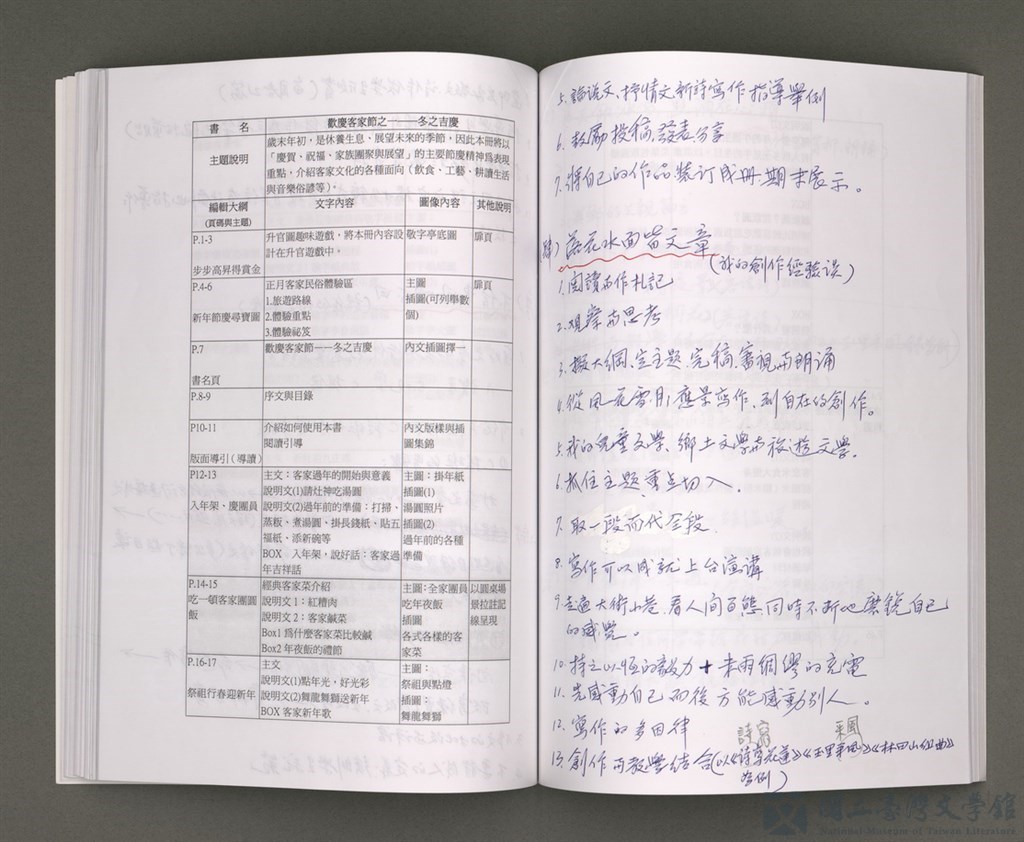 書　名
歡慶客家節之一——冬之吉慶
主題說明
歲末年初，是休養生息、展望未來的季節，因此本冊將以
「慶賀、祝福、家族團聚與展望」的主要節慶精神爲表現
重點，介紹客家文化的各種面向（飲食、工藝、耕讀生活
與音樂俗諺等）。
編輯大綱
(頁碼與主題)
文字內容
圖像內容
其他說明
P.1-3
步步高昇得賞金
升官圖趣味遊戲，將本冊內容設
計在升官遊戲中。
敬字亭底圖
扉頁
P.4-6
新年節慶尋寶圖
正月客家民俗體驗區
1.旅遊路線
2.體驗重點
3.體驗祕笈
主圖
插圖(可列舉數
個)
扉頁
P.7
書名頁
歡慶客家節一——冬之吉慶
內文插圖擇一
P.8-9
序文與目錄
P10-11
版面導引(導讀)
介紹如何使用本書
閱讀引導
內文版樣與插
圖集錦
P12-13
入年架、慶團員
主文：客家過年的開始與意義
說明文(1)請灶神吃湯圓
說明文(2)過年前的準備：打掃、
蒸粄、煮湯圓、掛長錢紙、貼五
福紙、添新碗等
BOX 入年架，說好話：客家過
年吉祥話
主圖：掛年紙
插圖(1)
湯圓照片
插圖(2)
過年前的各種
準備
P.14-15
吃一頓客家團圓
飯
經典客家菜介紹
說明文 1：紅糟肉
說明文 2：客家鹹菜
Box1 爲什麼客家菜比較鹹
Box2 年夜飯的禮節
主圖:全家團員
吃年夜飯
插圖
各式各樣的客
家菜
以圓桌場
景拉註記
線呈現
P.16-17
祭祖行春迎新年
主文
說明文(1)點年光，好光彩
說明文(2)舞龍舞獅送新年
BOX 客家新年歌
主圖：
祭祖與點燈
插圖：
舞龍舞獅
5. 論說文、抒情文、新詩寫作指導舉例
6. 鼓勵投稿、發表分享
7. 將自己的作品裝訂成冊、期末展示。
落花水面皆文章
(我的創作經驗談)
1. 閱讀與作札記
2. 觀察與思考
3. 擬大綱、定主題、完稿、審視與朗誦
4. 從風花雪月、應景寫作、到自在的創作。
5. 我的兒童文學、鄉土文學與旅遊文學。
6. 抓住主題、重點切入。
7. 取一段而代全段
8. 寫作可以成就上台演講
9. 走過大街小巷、看人間百態同時不斷地磨銳自己
的感覺。
10. 持之以恆的毅力＋未雨綢繆的充電
11. 先感動自己而後方能感動別人。
12. 寫作的多面律
13. 創作與教學結合(以《詩寫花蓮》《玉里采風》《林田山組曲》
為例)
國立臺灣文學館
National Museum of Taiwan Literature